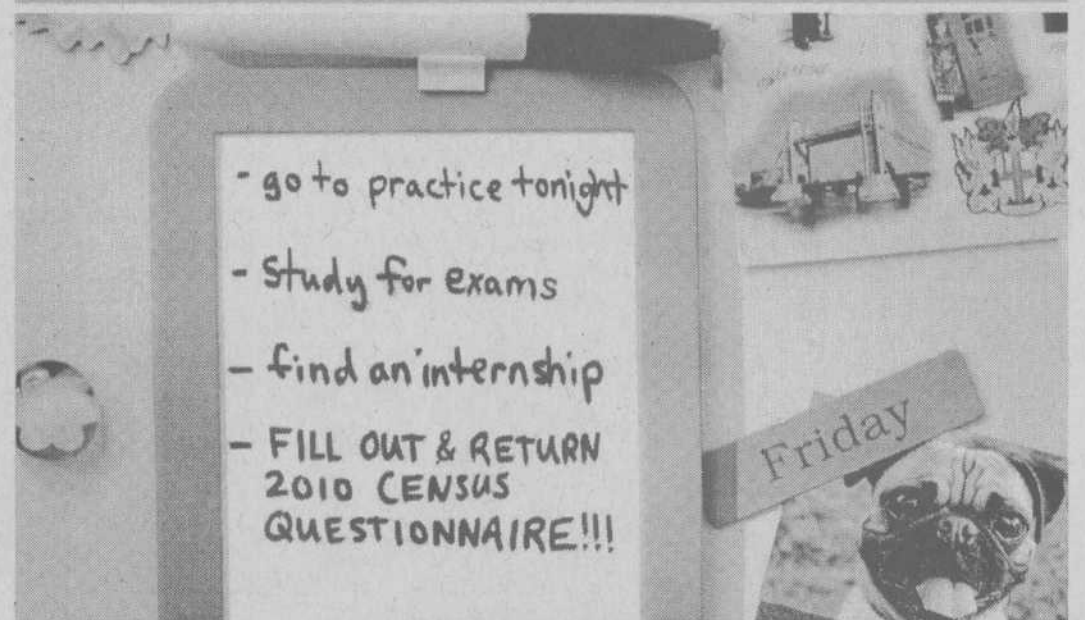 - go to practice tonight
- Study for exams
- find an internship
- FILL OUT & RETURN
2010 CENSUS
QUESTIONNAIRE!!!
Friday